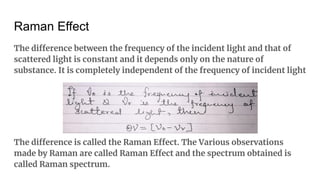 Raman Effect
The difference between the frequency of the incident light and that of
scattered light is constant and it depends only on the nature of
substance. It is completely independent of the frequency of incident light
If is the frequency of incident
light & is the frequency of
scattered light, then
The difference is called the Raman Effect. The Various observations
made by Raman are called Raman Effect and the spectrum obtained is
called Raman spectrum.